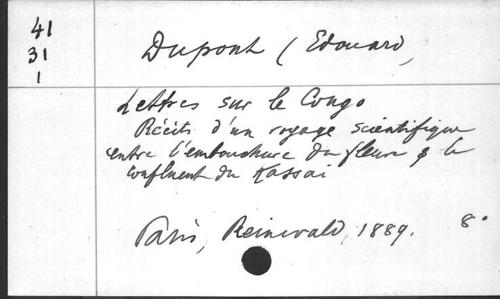 41
31
1
Dupont (Edouard,
Lettres sur le Congo
Récits d'un voyage scientifique
entre l'embouchure du fleuve & le
confluent du Kassai
Paris, Reinwald, 1889. 8°